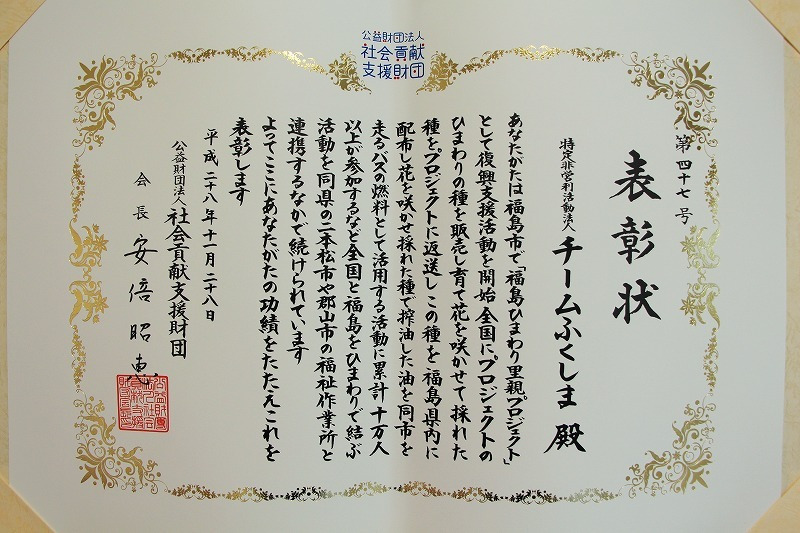 公益財団法人
社会貢献
支援財団
第四十七号
表彰状
特定非営利活動法人
チームふくしま 殿
あなたがたは福島市で「福島ひまわり里親プロジェクト」
として復興支援活動を開始 全国にプロジェクトの
ひまわりの種を販売し育て花を咲かせて採れた
種をプロジェクトに返送し この種を福島県内に
配布し花を咲かせ採れた種で搾油した油を同市を
走るバスの燃料として活用する活動に累計十万人
以上が参加するなど全国と福島をひまわりで結ぶ
活動を同県の二本松市や郡山市の福祉作業所と
連携するなかで続けられています
よってここにあなたがたの功績をたたえこれを
表彰します
平成二十八年十一月二十八日
公益財団法人 社会貢献支援財団
会長 安倍昭恵